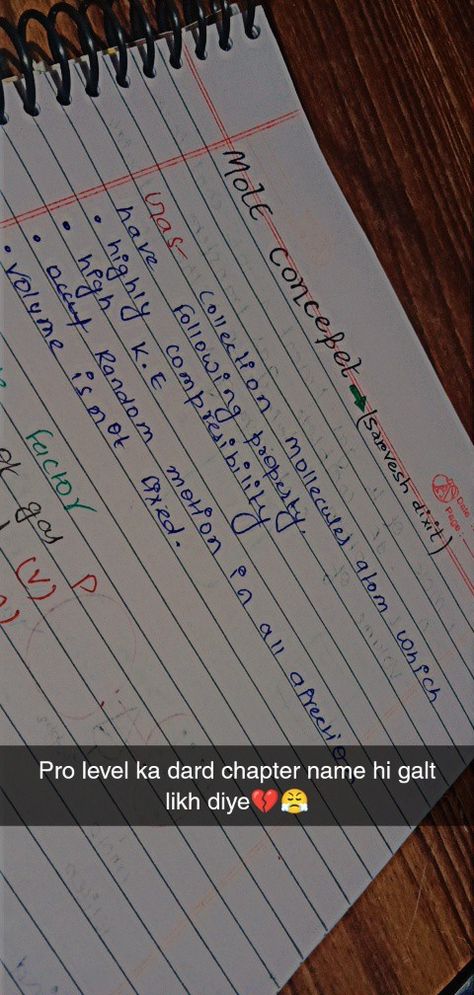 Date
Page:
MolE Concepet → (Sarvesh dixit)
Gas- Collection mollecules atom which
have following property,
• highly compresibility
• high K.E
• occut Random motion in all direction
• volume is not fixed.
Factor
of gas P
(V)
Pro level ka dard chapter name hi galt
likh diye💔😤